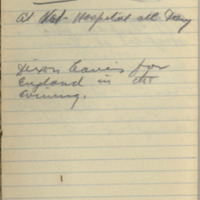 at Vet. Hospital all Day
Dixon leaves for
England in the
evening.